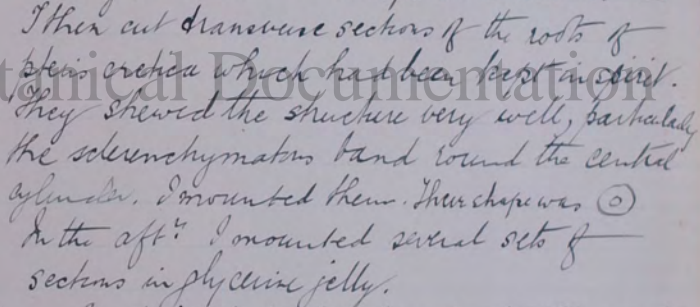 I then cut transverse sections of the roots of
pteris cretica which had been kept in spirit.
They shewed the structure very well, particularly
the sclerenchymatous band round the central
cylinder. I mounted them. Their shape was
In the aftn I mounted several sets of
sections in glycerine jelly.
tanical Documentation